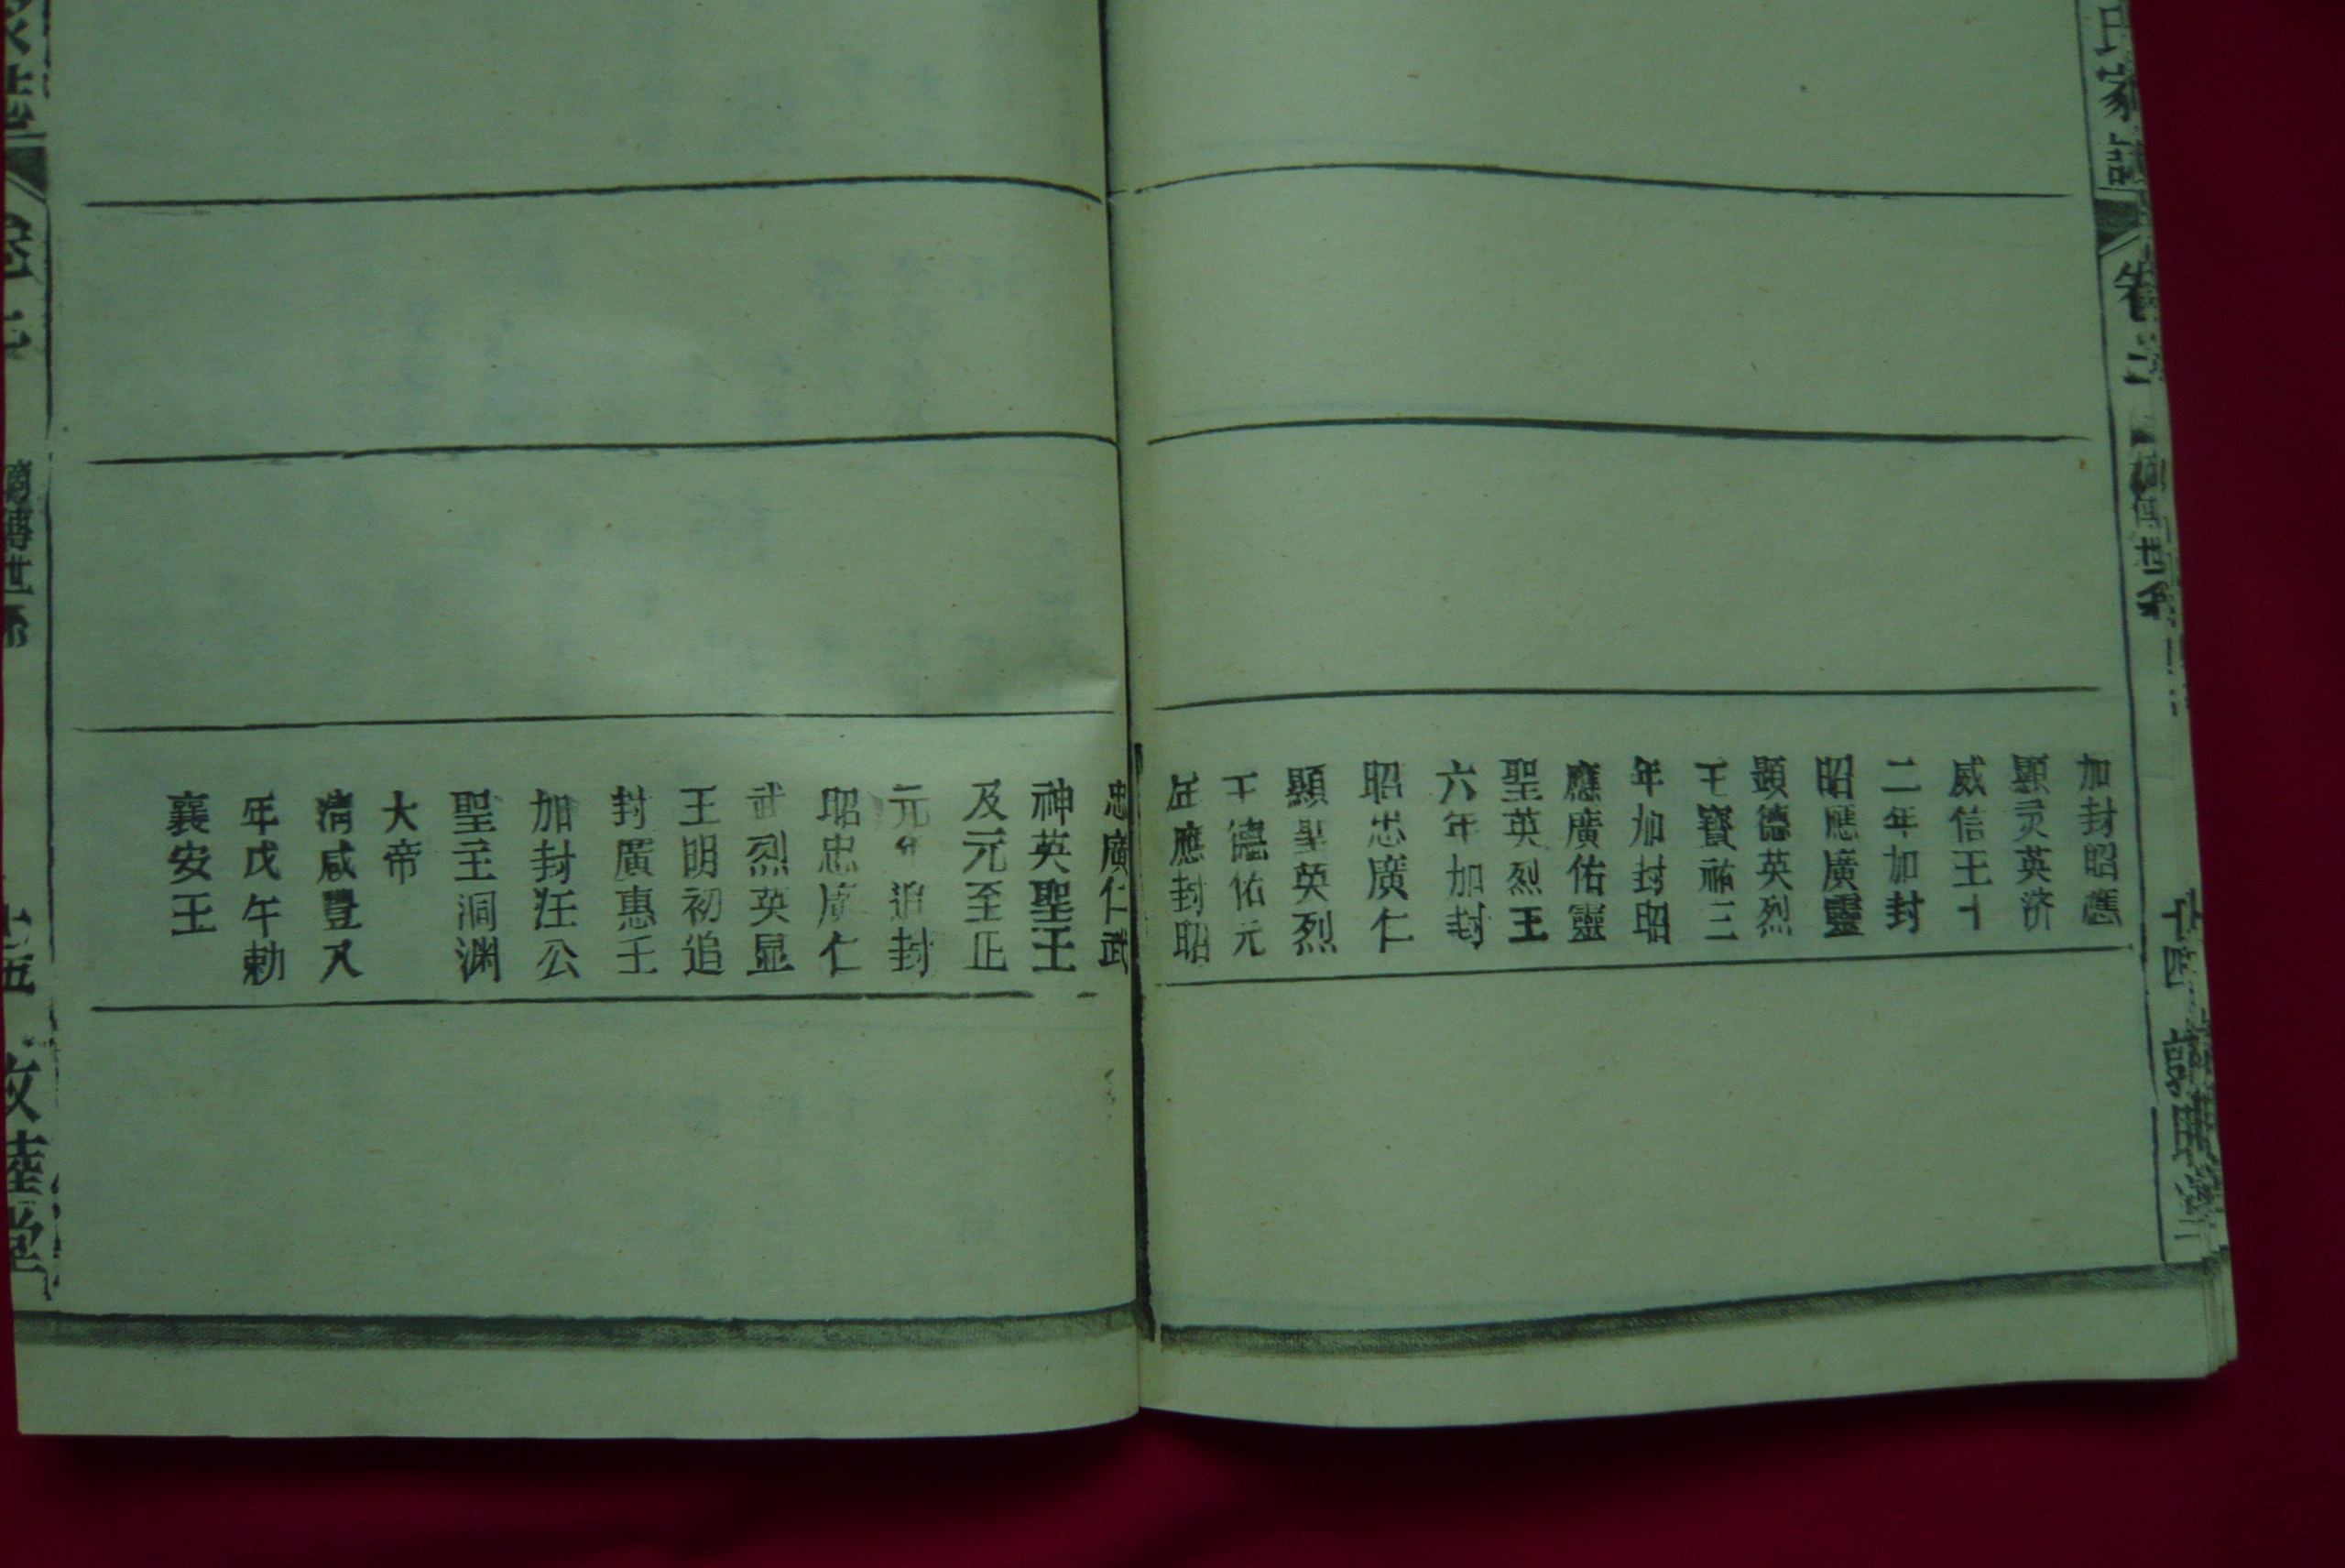 氏家誌
卷二
世系
十四
加封昭應
顯灵英济
威信王十
二年加封
昭應廣靈
顯德英烈
王寳祐三
年加封昭
應廣佑靈
聖英烈王
六年加封
昭忠廣仁
顯聖英烈
王德佑元
年應封昭
忠廣仁武
神英聖王
及元至正
元年追封
昭忠廣仁
武烈英显
王明初追
封廣惠王
加封汪公
聖主洞渊
大帝
清咸豐八
年戊午勅
襄安王
家誌
傳世系
十五
敦睦堂